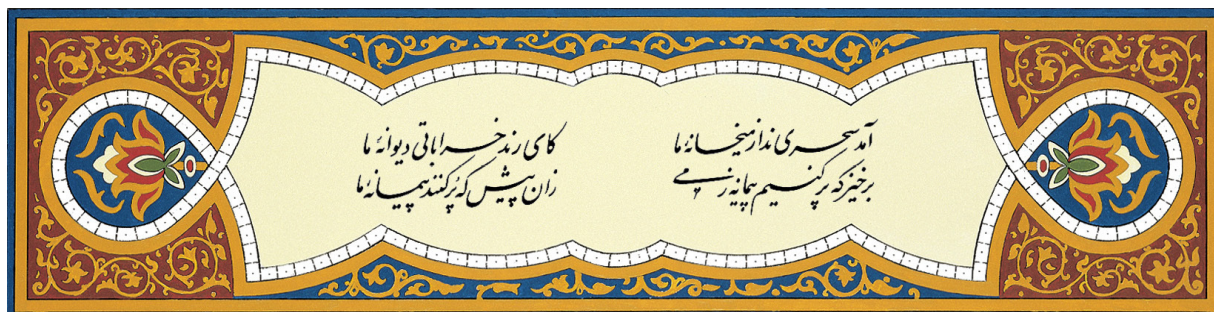 آمد سحری ندا ز میخانهٔ ما
کای رند خراباتی دیوانهٔ ما
برخیز که پر کنیم پیمانه ز می
زان پیش که پُر کنند پیمانهٔ ما